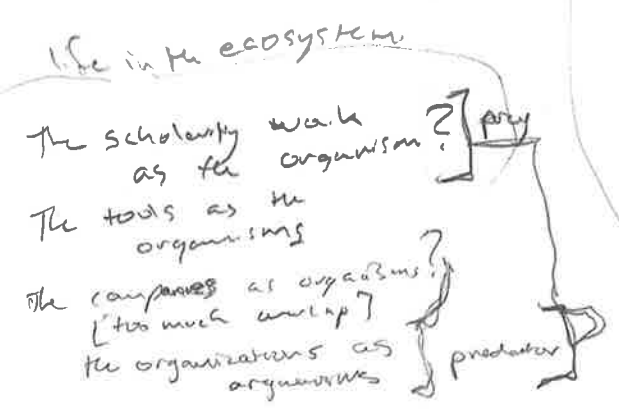 life in the ecosystem.
The scholarly work
as the organism?
prey
The tools as the
organisms
The companies as organisms?
[too much overlap]
the organizations as
organisms
predator